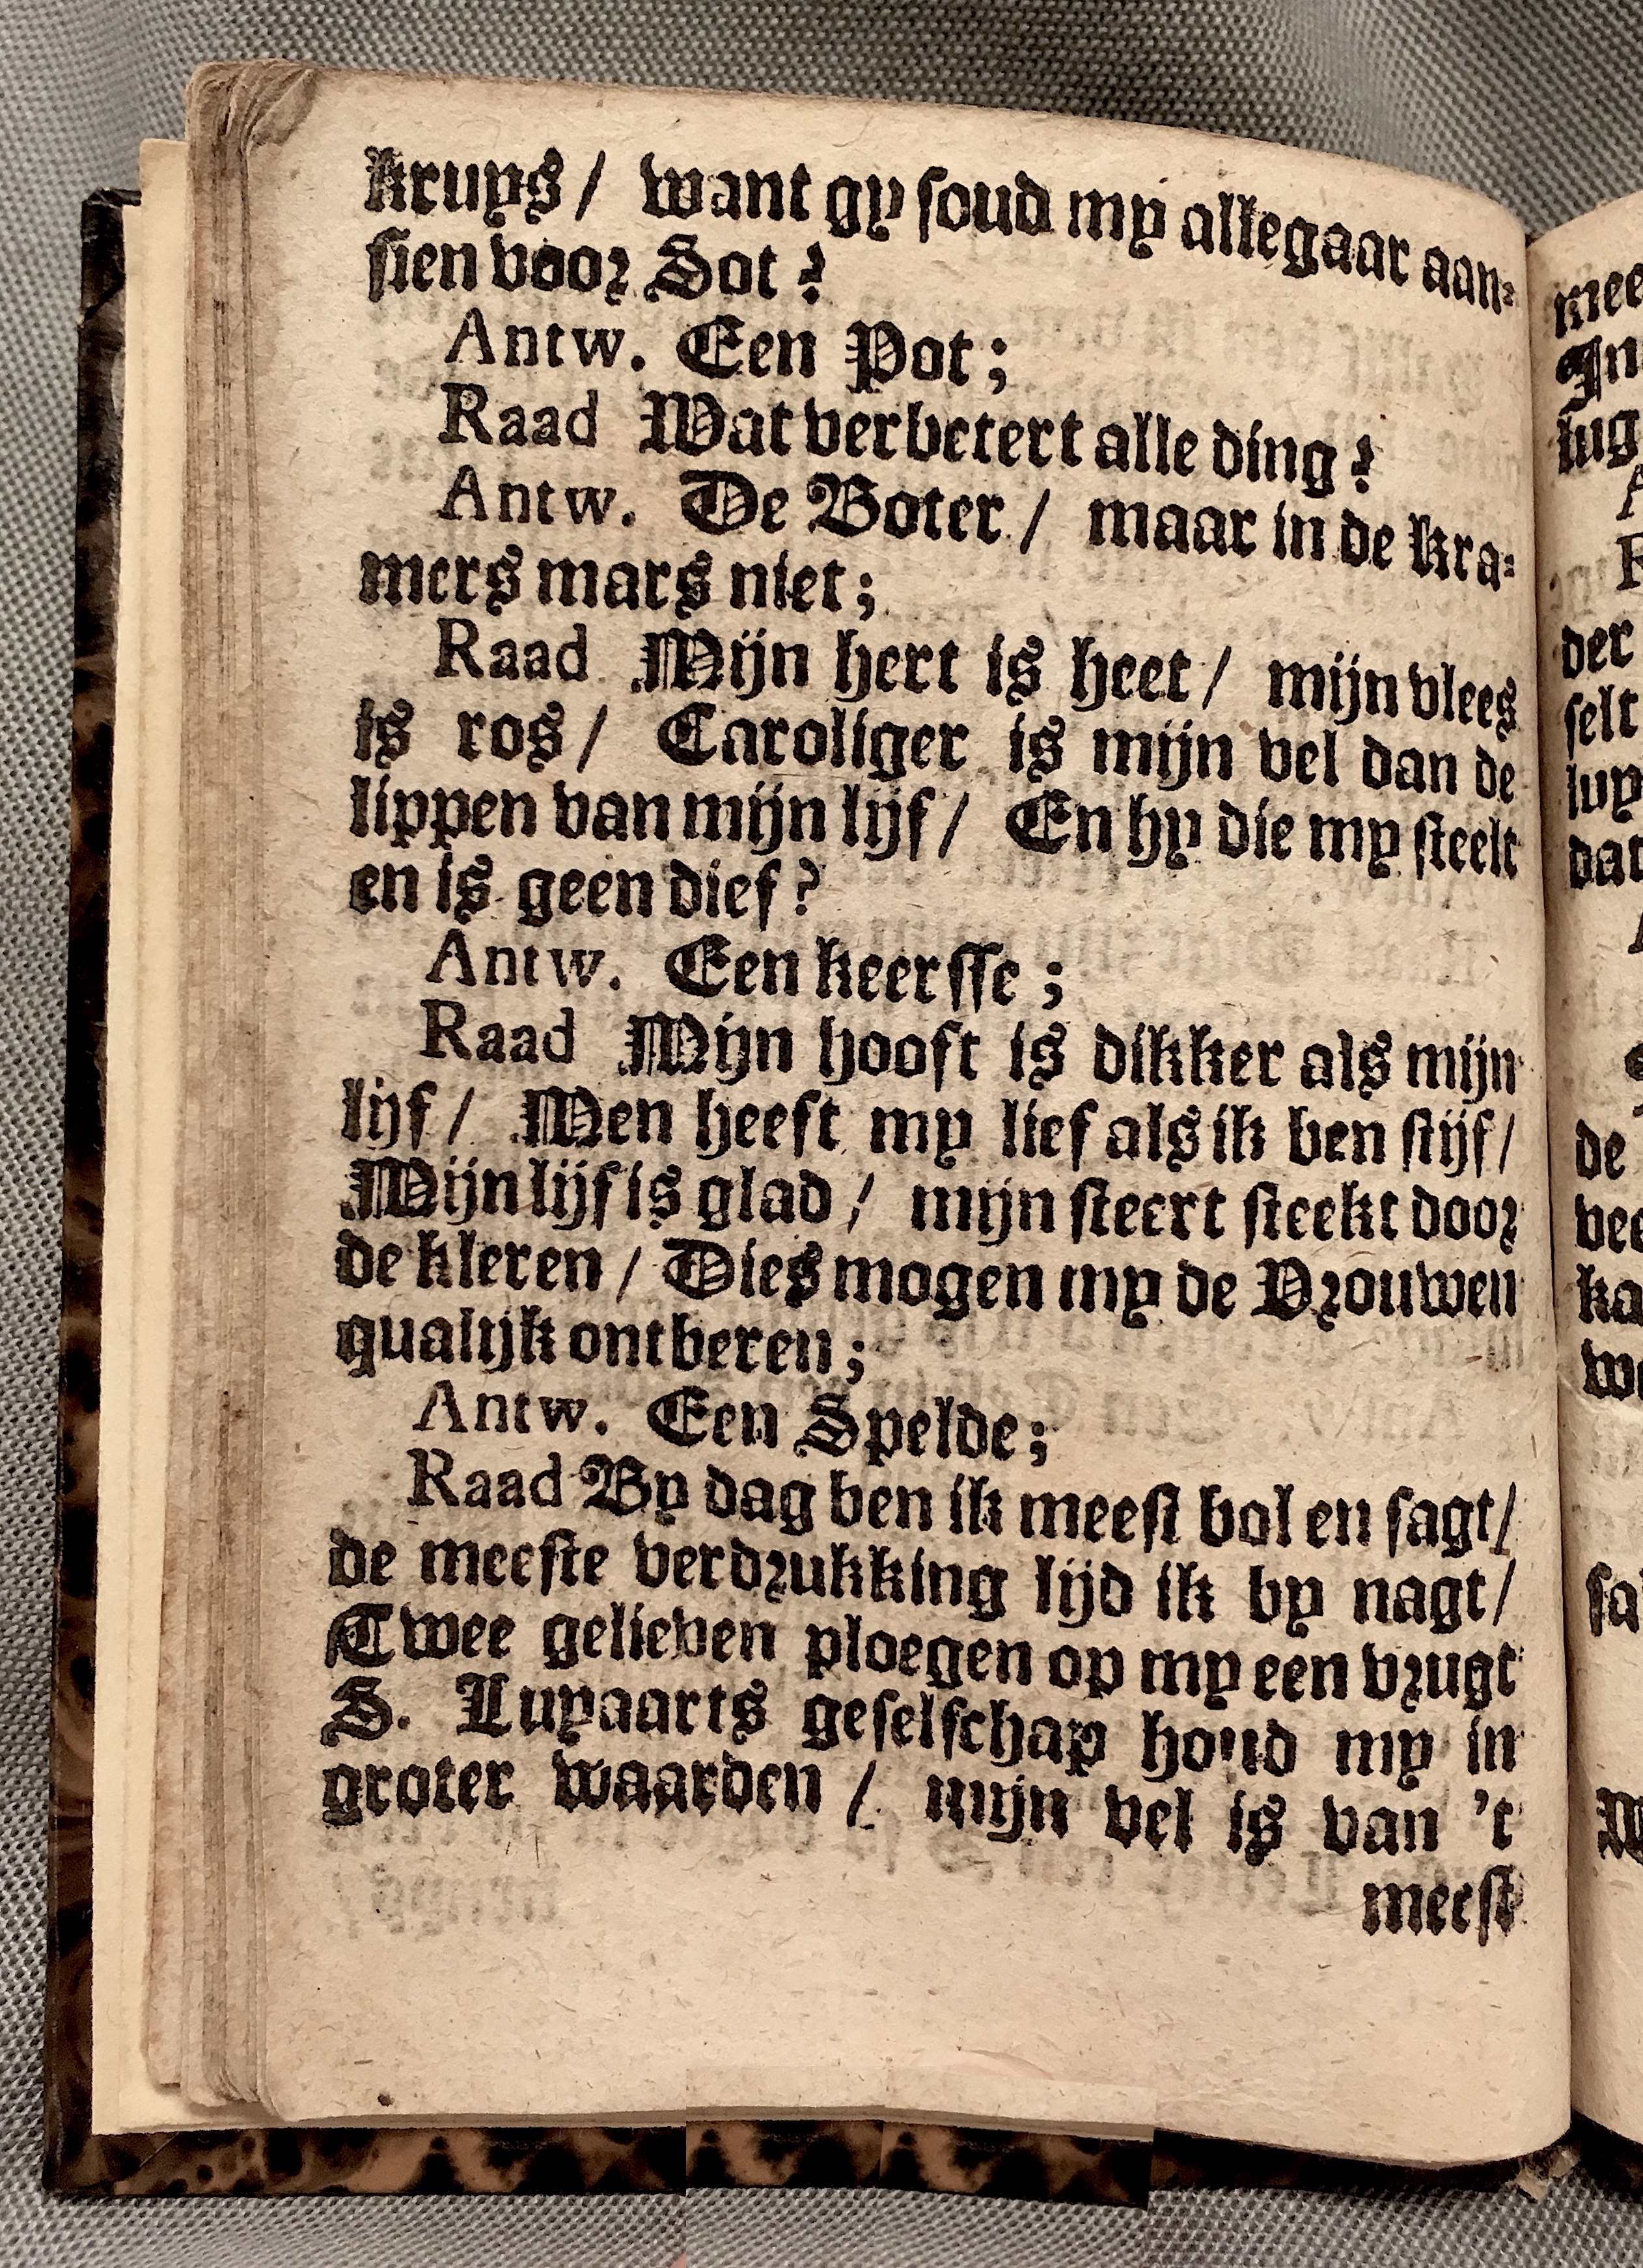 kruys / want gy soud my allegaar aan-
sien voor Sot?
Antw. Een Pot;
Raad Wat verbetert alle ding?
Antw. De Boter / maar in de kra-
mers mars niet;
Raad Mijn hert is heet / mijn vlees
is ros / Caroliger is mijn vel dan de
lippen van mijn lijf / En hy die my steelt
en is geen dief?
Antw. Een keersse;
Raad Mijn hooft is dikker als mijn
lijf / Men heeft my lief als ik ben stijf /
Mijn lijf is glad / mijn steert steekt door
de kleren / Dies mogen my de Vrouwen
qualijk ontberen;
Antw. Een Spelde;
Raad By dag ben ik meest bol en sagt /
de meeste verdrukking lijd ik by nagt /
Twee gelieven ploegen op my een vrugt
S. Luyaarts geselschap houd my in
groter waarden / mijn vel is van 't
meest
mee
In
lug
der
selt
luy
dat
de
vee
ka